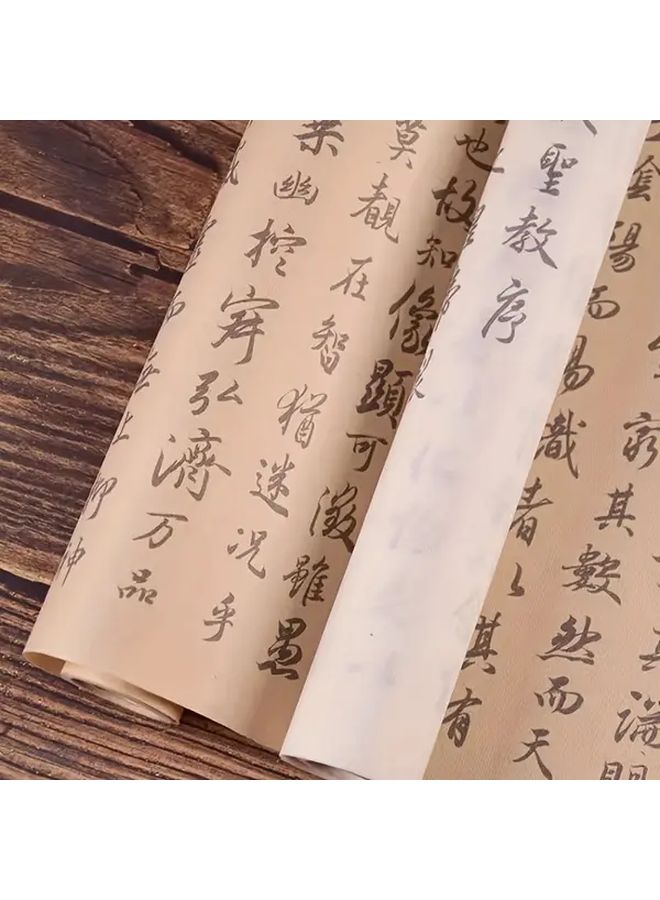 窮其數然而天
陰陽而易識者以其有
聖教序
也故知像顯可徵雖愚
莫覩在智猶迷況乎
乘幽控寂弘濟万品
威靈而無上抑神